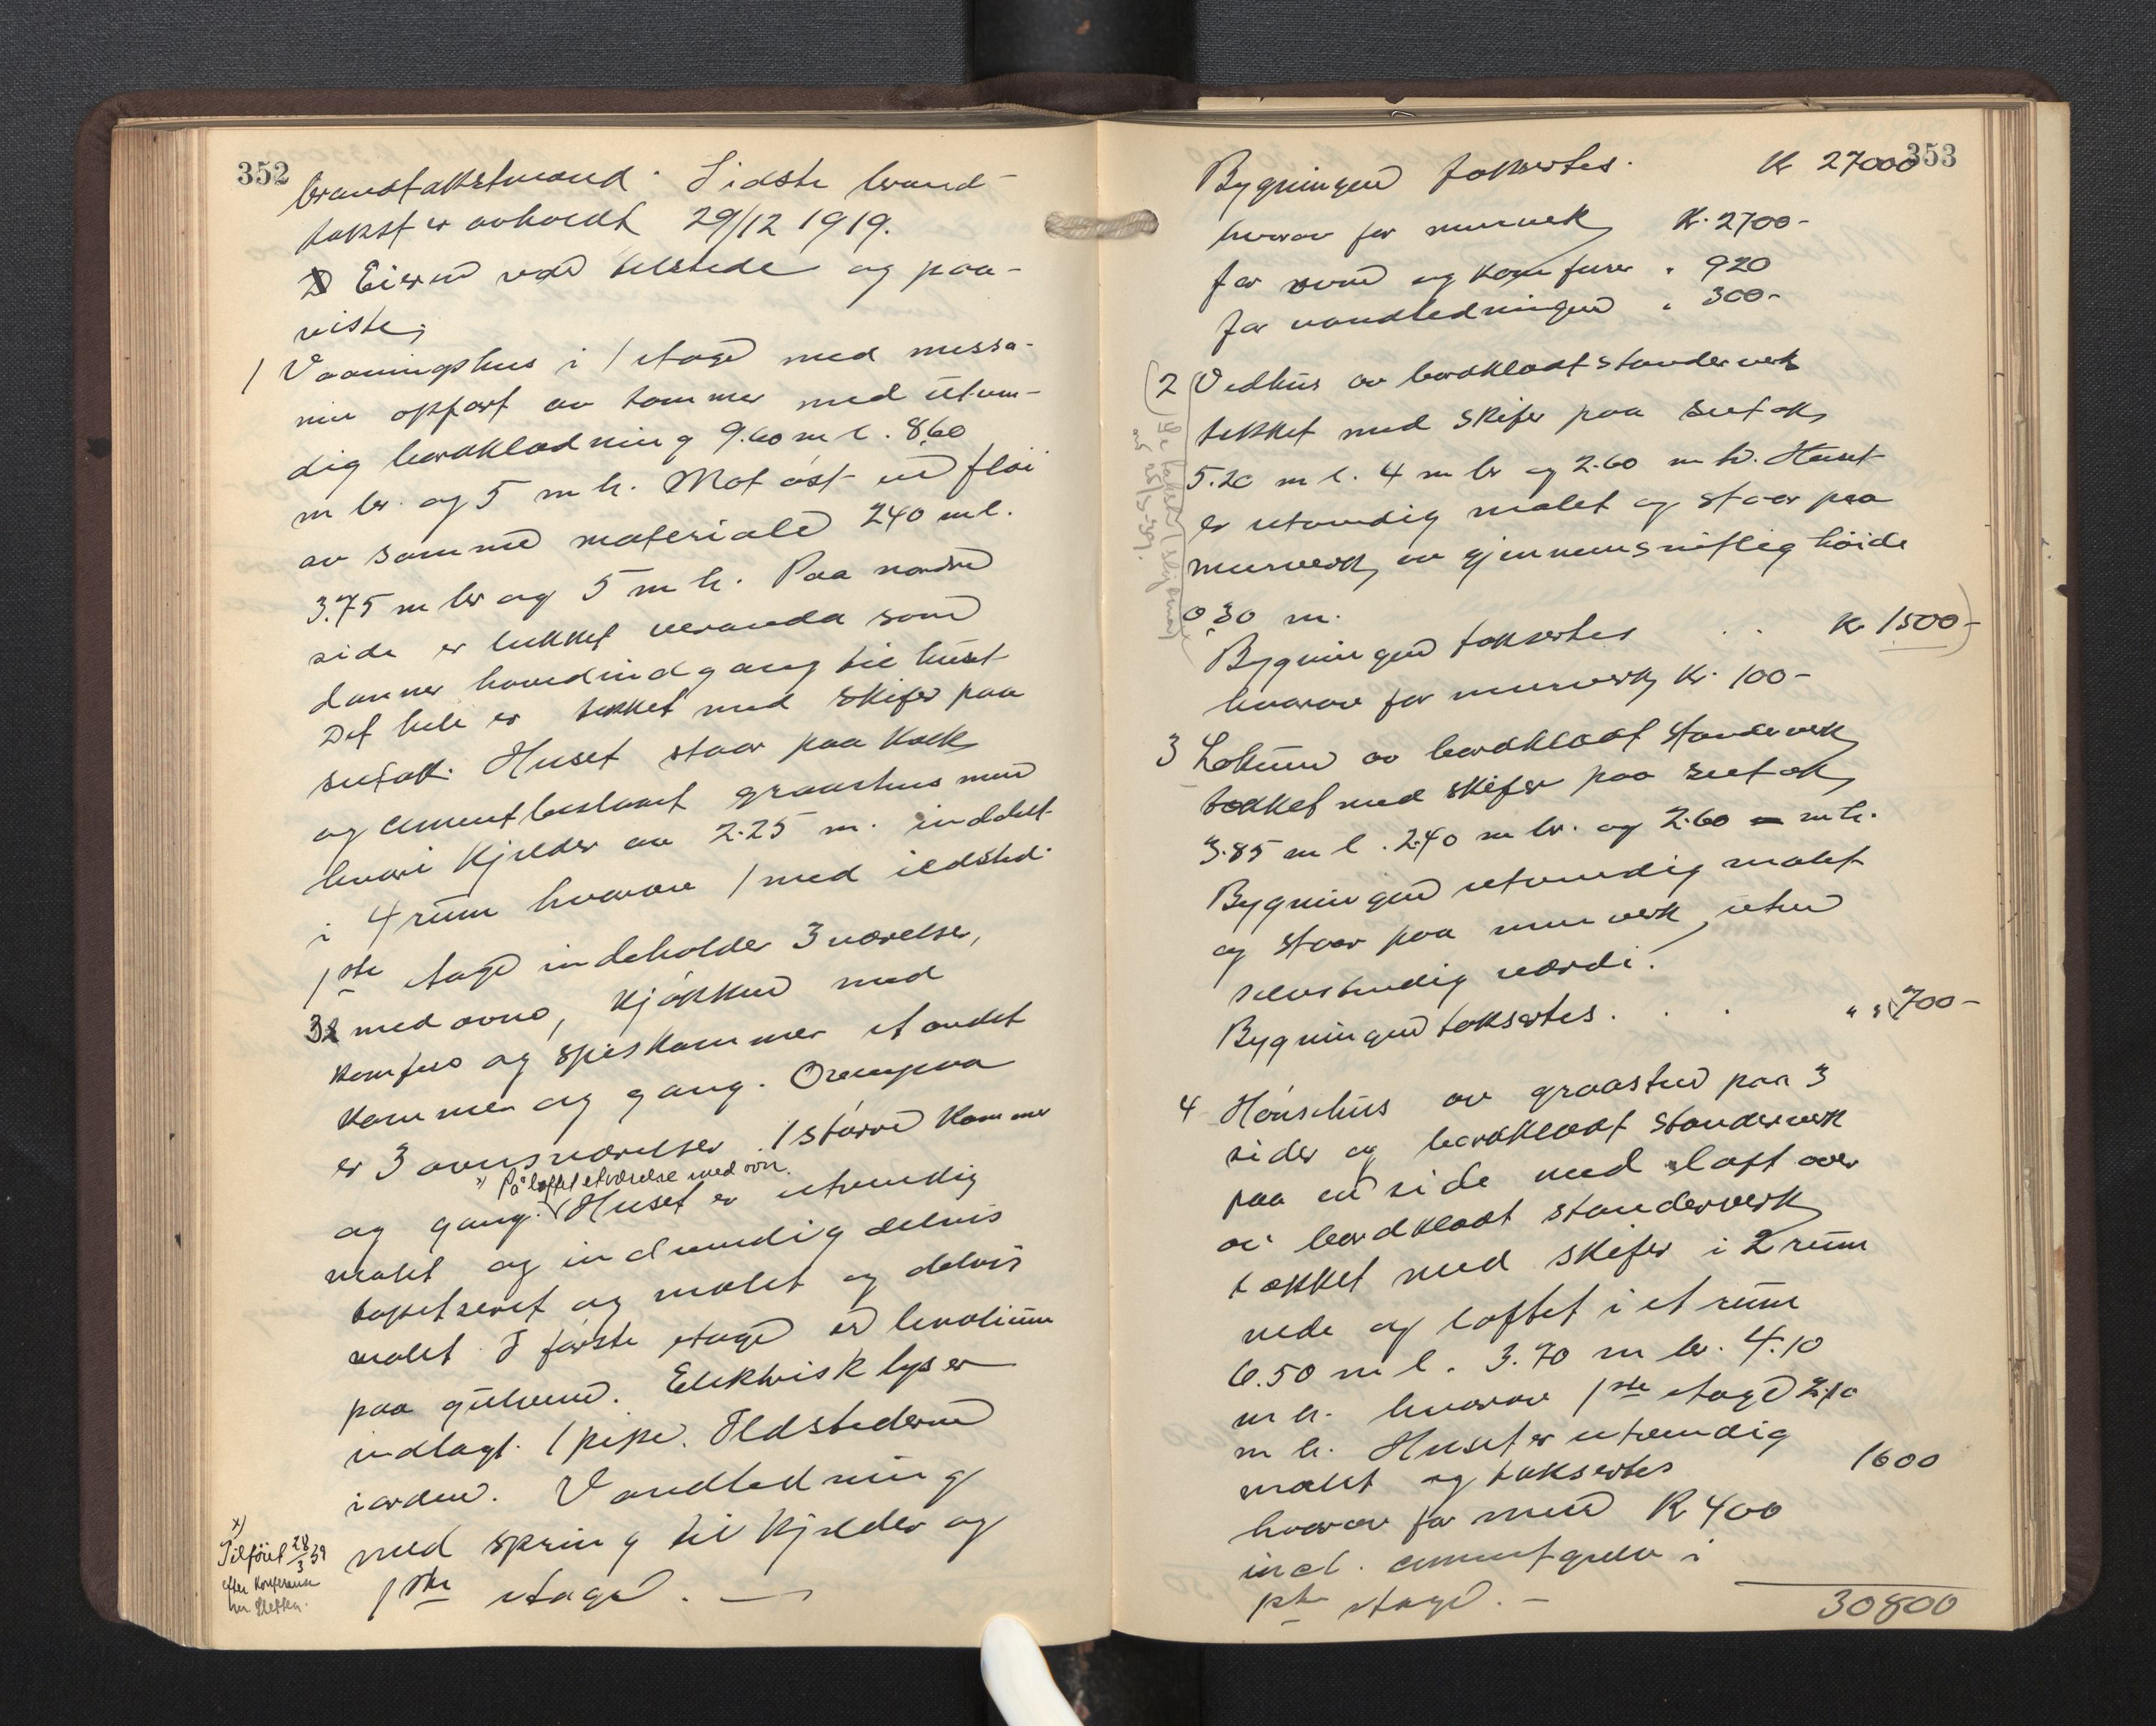 352
brandtakstmænd. Sidste brand-
takst er avholdt 29/12 1919.
Eieren var tilstede og paa-
viste;
1 Vaaningshus i 1 etage med messa-
nin opført av tømmer med utven-
dig bordklædning 9.60 m l. 8.60
m br. og 5 m h. Mot øst en fløi
av samme materiale 2.40 m l.
3.75 m br og 5 m h. Paa nordre
side er lukket veranda som
danner hovedindgang til huset
Det hele er tækket med skifer paa
sutak. Huset staar paa kalk
og cementbeslaaet graastensmur
hvori kjelder av 2.25 m. inddelt
i 4 rum hvorav 1 med ildsted.
1ste etage indeholder 3 værelser,
3 med ovne, kjøkken med
komfur og spiskammer et andet
kammer og gang. Ovenpaa
er 3 ovnsværelser 1 større kammer
x) På loftet et værelse med ovn.
og gang. Huset er utvendig
malet og indvendig delvis
tapetseret og malet og delvis
malt. I første etage er linolium
paa gulvene. Elektrisk lys er
indlagt. 1 pipe. Ildstederne
i orden. Vandledning
med spring til kjelder og
1ste etage. —
x)
Tilføiet 28/3 39
efter konferanse
353
Bygningen takseres. Kr 27000
hvorav for murverk Kr. 2700-
for ovne og komfurer " 920
for vandledningen " 300-
(2 Vedhus av bordklædt stenderverk
tekket med skifer paa sutak
5.20 m l. 4 m br og 2.60 m h. Huset
er utvendig malet og staar paa
murverk av gjennemsnitlig høide
0.30 m.
Bygningen takseres . . Kr 1500-)
hvorav for murverk Kr. 100-
3 Lokum av bordklædt stenderverk
tækket med skifer paa sutak
3.85 m l. 2.40 m br. og 2.60 m h.
Bygningen utvendig malet
og staar paa murverk, uten
selvstendig værdi.
Bygningen takseres . . . " " 700-
4 Hønsehus av graasten paa 3
sider og bordklædt stenderverk
paa en side med loft over
av bordklædt stenderverk
tækket med skifer i 2 rum
nede og loftet i et rum
6.50 m l. 3.70 m br. 4.10
m h. hvorav 1ste etage 2.10
m h. Huset er utvendig
malet og takseres 1600
hvorav for mur Kr 400
incl. cementgulv i
1ste etage. —
30800